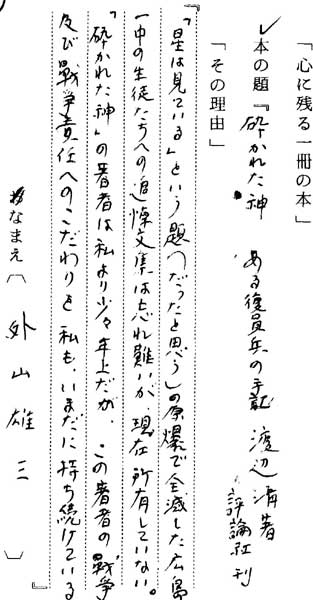 「心に残る一冊の本」
本の題『砕かれた神 ある復員兵の手記 渡辺清著
評論社刊
「その理由」
『「星は見ている」という題（だったと思う）の原爆で全滅した広島
一中の生徒たちへの追悼文集は忘れ難いが、現在所有していない。
「砕かれた神」の著者は私より少々年上だが、この著者の戦争
及び戦争責任へのこだわりを私も、いまだに持ち続けている』
おなまえ〔外山雄三〕